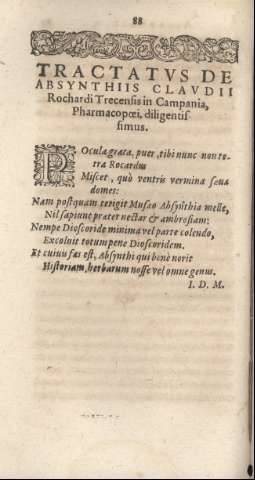 88
TRACTATVS DE
ABSYNTHIIS CLAVDII
Rochardi Trecensis in Campania,
Pharmacopœi, diligentis-
simus.
POcula grata, puer, tibi nunc non te-
tra Rocardus
Miscet, quò ventris vermina seua
domes:
Nam postquam tetigit Musæo Absynthia melle,
Nil sapiunt præter nectar & ambrosiam:
Nempe Dioscoride minima vel parte colendo,
Excoluit totum pene Dioscoridem.
Et cuiuis fas est, Absynthi qui benè norit
Historiam, herbarum nosse vel omne genus.
I. D. M.